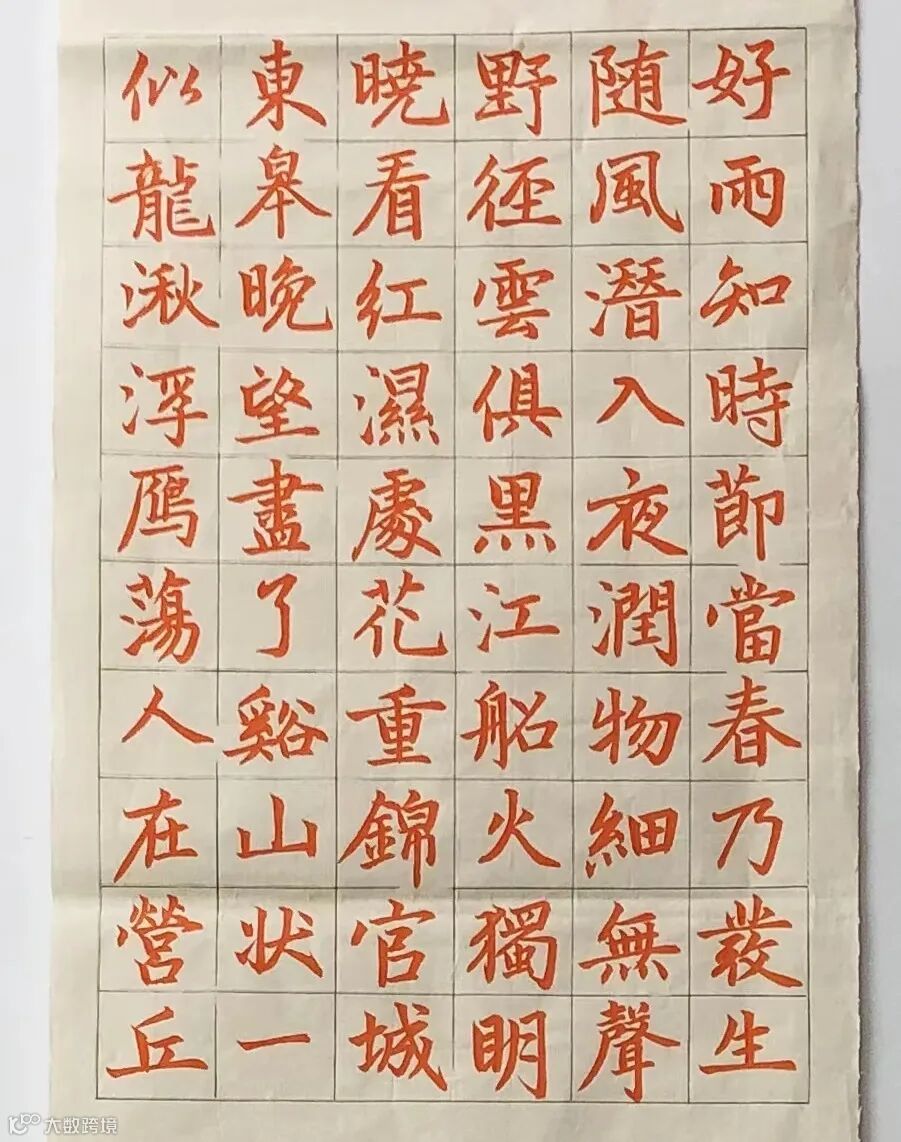 好雨知時節當春乃發生
随風潛入夜潤物細無聲
野徑雲俱黑江船火獨明
曉看红濕處花重錦官城
東皋晚望盡了谿山状一
似龍湫浮鴈蕩人在營丘
大数跨境